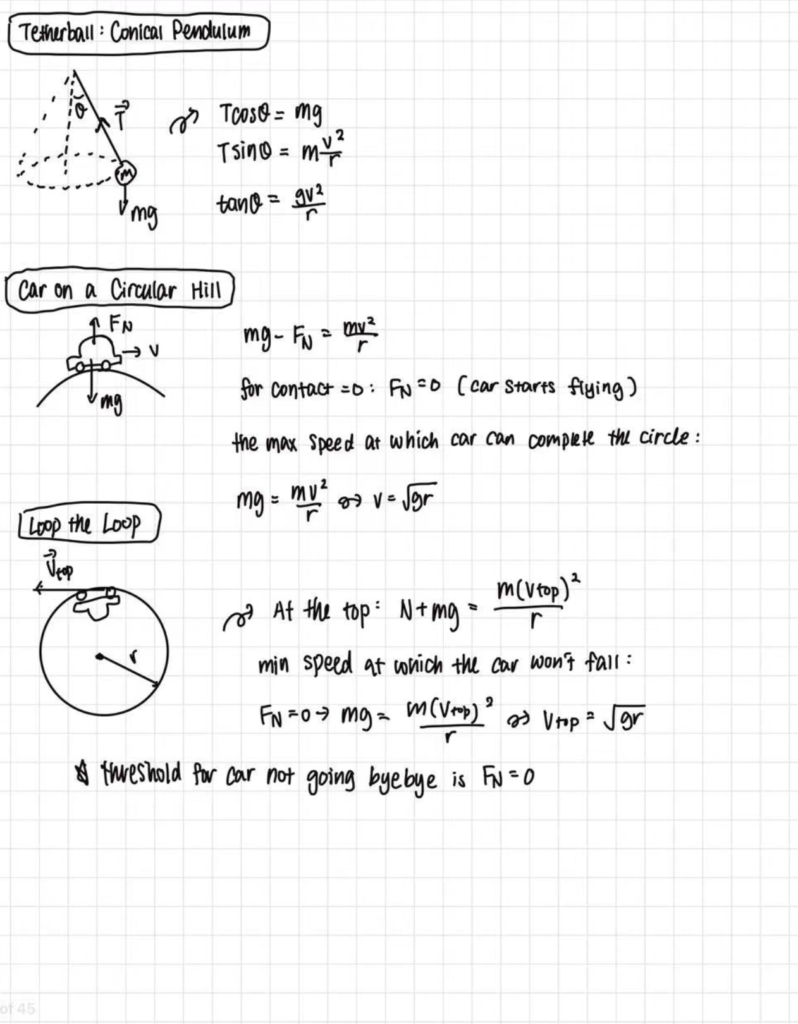 Tetherball: Conical Pendulum
θ T⃗
Tcosθ = mg
m
Tsinθ = m v²/r
mg
tanθ = gv²/r
Car on a Circular Hill
F_N
mg - F_N = mv²/r
v
for contact =0: F_N=0 (car starts flying)
mg
the max speed at which car can complete the circle:
mg = mv²/r → v = √gr
Loop the Loop
V⃗top
At the top: N+mg = m(Vtop)²/r
r
min speed at which the car won't fall:
F_N=0 → mg = m(Vtop)²/r → Vtop = √gr
☆ threshold for car not going byebye is F_N=0
of 45